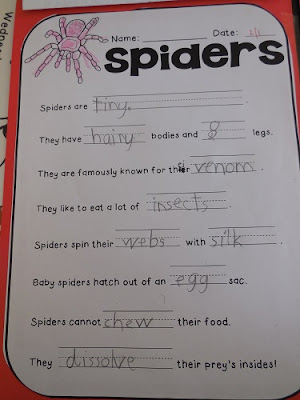 Wednesd
Name: Date: 1/1
spiders
Spiders are tiny.
They have hairy bodies and 8 legs.
They are famously known for their venom.
They like to eat a lot of insects.
Spiders spin their webs with silk.
Baby spiders hatch out of an egg sac.
Spiders cannot chew their food.
They dissolve their prey's insides!